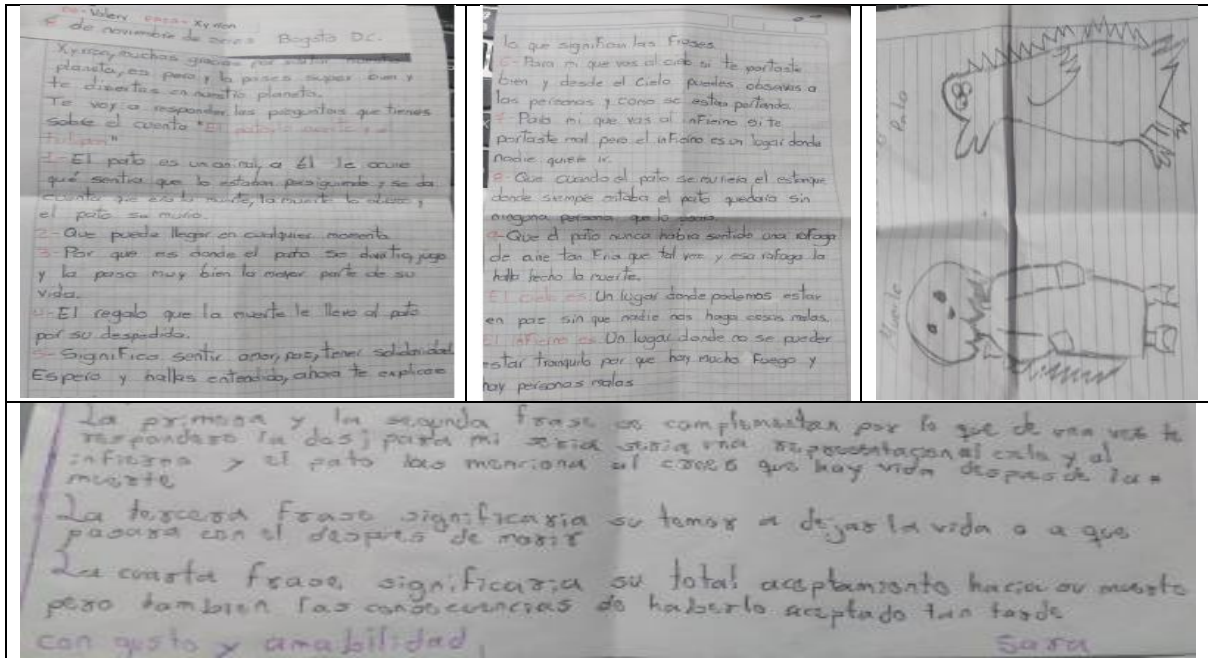 De= Valery para= Xyrron
de noviembre de Bogota D.C.
Xyrron, muchas gracias por visitar nuestro
planeta, es pero y la pases super bien y
te diviertas en nuestro planeta.
Te voy a responder las preguntas que tienes
sobre el cuento "El pato y la muerte y el
tulipan"
1- El pato es un animal, a él le ocurre
que sentia que lo estaban persiguiendo y se da
cuenta que era la muerte, la muerte lo
el pato se murio.
2- Que puede llegar en cualquier momento
3- Por que es donde el pato se divertia, jugo
y la paso muy bien la mayor parte de su
vida.
4- El regalo que la muerte le llevo al pato
por su despedida.
5- Significa sentir amor, paz, tener solidaridad.
Espero y hallas entendido, ahora te explicare
lo que significan las Frases
6- Para mi que vas al cielo si te portaste
bien y desde el Cielo puedes observas a
las personas y como se estan portando.
7- Para mi que vas al inFierno si te
portaste mal pero el inFierno es un lugar donde
nadie quiere ir.
8- Que cuando el pato se muriera el estanque
donde siempre estaba el pato quedaria sin
ninguna persona que lo
9- Que el pato nunca habia sentido una rafaga
de aire tan Fria que tal vez y esa rafaga la
halla hecho la muerte.
El cielo es Un lugar donde podemos estar
en paz sin que nadie nos haga cosas malas.
El inFierno es Un lugar donde no se puede
estar tranquilo por que hay mucho Fuego y
hay personas malas
Pato
Muerte
La primera y la segunda frase se complementan por lo que de una vez te
respondere la dos; para mi seria seria una representacion al cielo y al
infierno y el pato las menciona al creer que hay vida despues de la
muerte
La tercera frase significaria su temor a dejar la vida o a que
pasara con el despues de morir
La cuarta frase significaria su total aceptamiento hacia su muerte
pero tambien las consecuencias de haberlo aceptado tan tarde
con gusto y amabilidad,
Sara